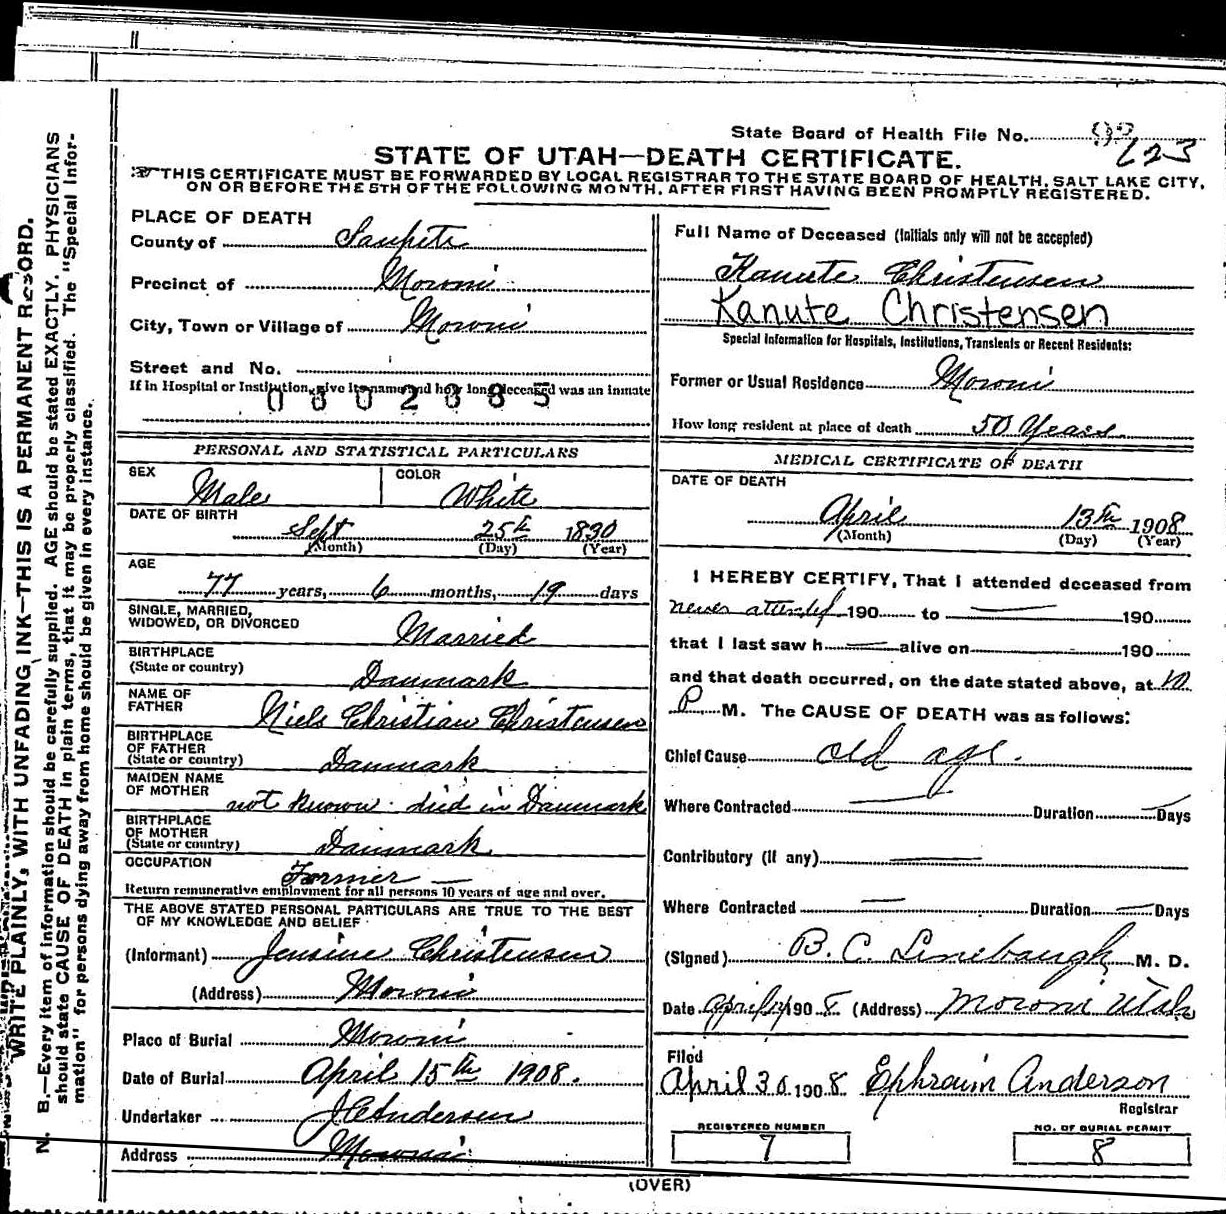 State Board of Health File No. 223
STATE OF UTAH—DEATH CERTIFICATE.
THIS CERTIFICATE MUST BE FORWARDED BY LOCAL REGISTRAR TO THE STATE BOARD OF HEALTH, SALT LAKE CITY,
ON OR BEFORE THE 5TH OF THE FOLLOWING MONTH, AFTER FIRST HAVING BEEN PROMPTLY REGISTERED.
WRITE PLAINLY, WITH UNFADING INK—THIS IS A PERMANENT RECORD.
N. B.—Every item of information should be carefully supplied. AGE should be stated EXACTLY. PHYSICIANS
should state CAUSE OF DEATH in plain terms, that it may be properly classified. The "Special Infor-
mation" for persons dying away from home should be given in every instance.
PLACE OF DEATH
County of Sanpete
Precinct of Moroni
City, Town or Village of Moroni
Street and No.
If in Hospital or Institution, give its name and how long deceased was an inmate
PERSONAL AND STATISTICAL PARTICULARS
SEX Male COLOR White
DATE OF BIRTH
Sept 25th 1830
(Month) (Day) (Year)
AGE
77 years, 6 months, 19 days
SINGLE, MARRIED,
WIDOWED, OR DIVORCED Married
BIRTHPLACE
(State or country) Danmark
NAME OF
FATHER Niels Christian Christensen
BIRTHPLACE
OF FATHER
(State or country) Danmark
MAIDEN NAME
OF MOTHER not known. died in Danmark
BIRTHPLACE
OF MOTHER
(State or country) Danmark
OCCUPATION Farmer —
Return remunerative employment for all persons 10 years of age and over.
THE ABOVE STATED PERSONAL PARTICULARS ARE TRUE TO THE BEST
OF MY KNOWLEDGE AND BELIEF
(Informant) Jensine Christensen
(Address) Moroni
Place of Burial Moroni
Date of Burial April 15th 1908.
Undertaker J C Andersen
Address Moroni
Full Name of Deceased (Initials only will not be accepted)
Kanute Christensen
Kanute Christensen
Special Information for Hospitals, Institutions, Transients or Recent Residents:
Former or Usual Residence Moroni
How long resident at place of death 50 Years
MEDICAL CERTIFICATE OF DEATH
DATE OF DEATH
April 13th 1908
(Month) (Day) (Year)
I HEREBY CERTIFY, That I attended deceased from
never attended 190 to — 190
that I last saw h — alive on 190
and that death occurred, on the date stated above, at 10
P. M. The CAUSE OF DEATH was as follows:
Chief Cause old age.
Where Contracted — Duration — Days
Contributory (if any) —
Where Contracted — Duration — Days
(Signed) B. C. Linebaugh M. D.
Date april 190 8 (Address) Moroni Utah
Filed
April 30 1908 Ephraim Anderson
Registrar
REGISTERED NUMBER
7
NO. OF BURIAL PERMIT
8
(OVER)